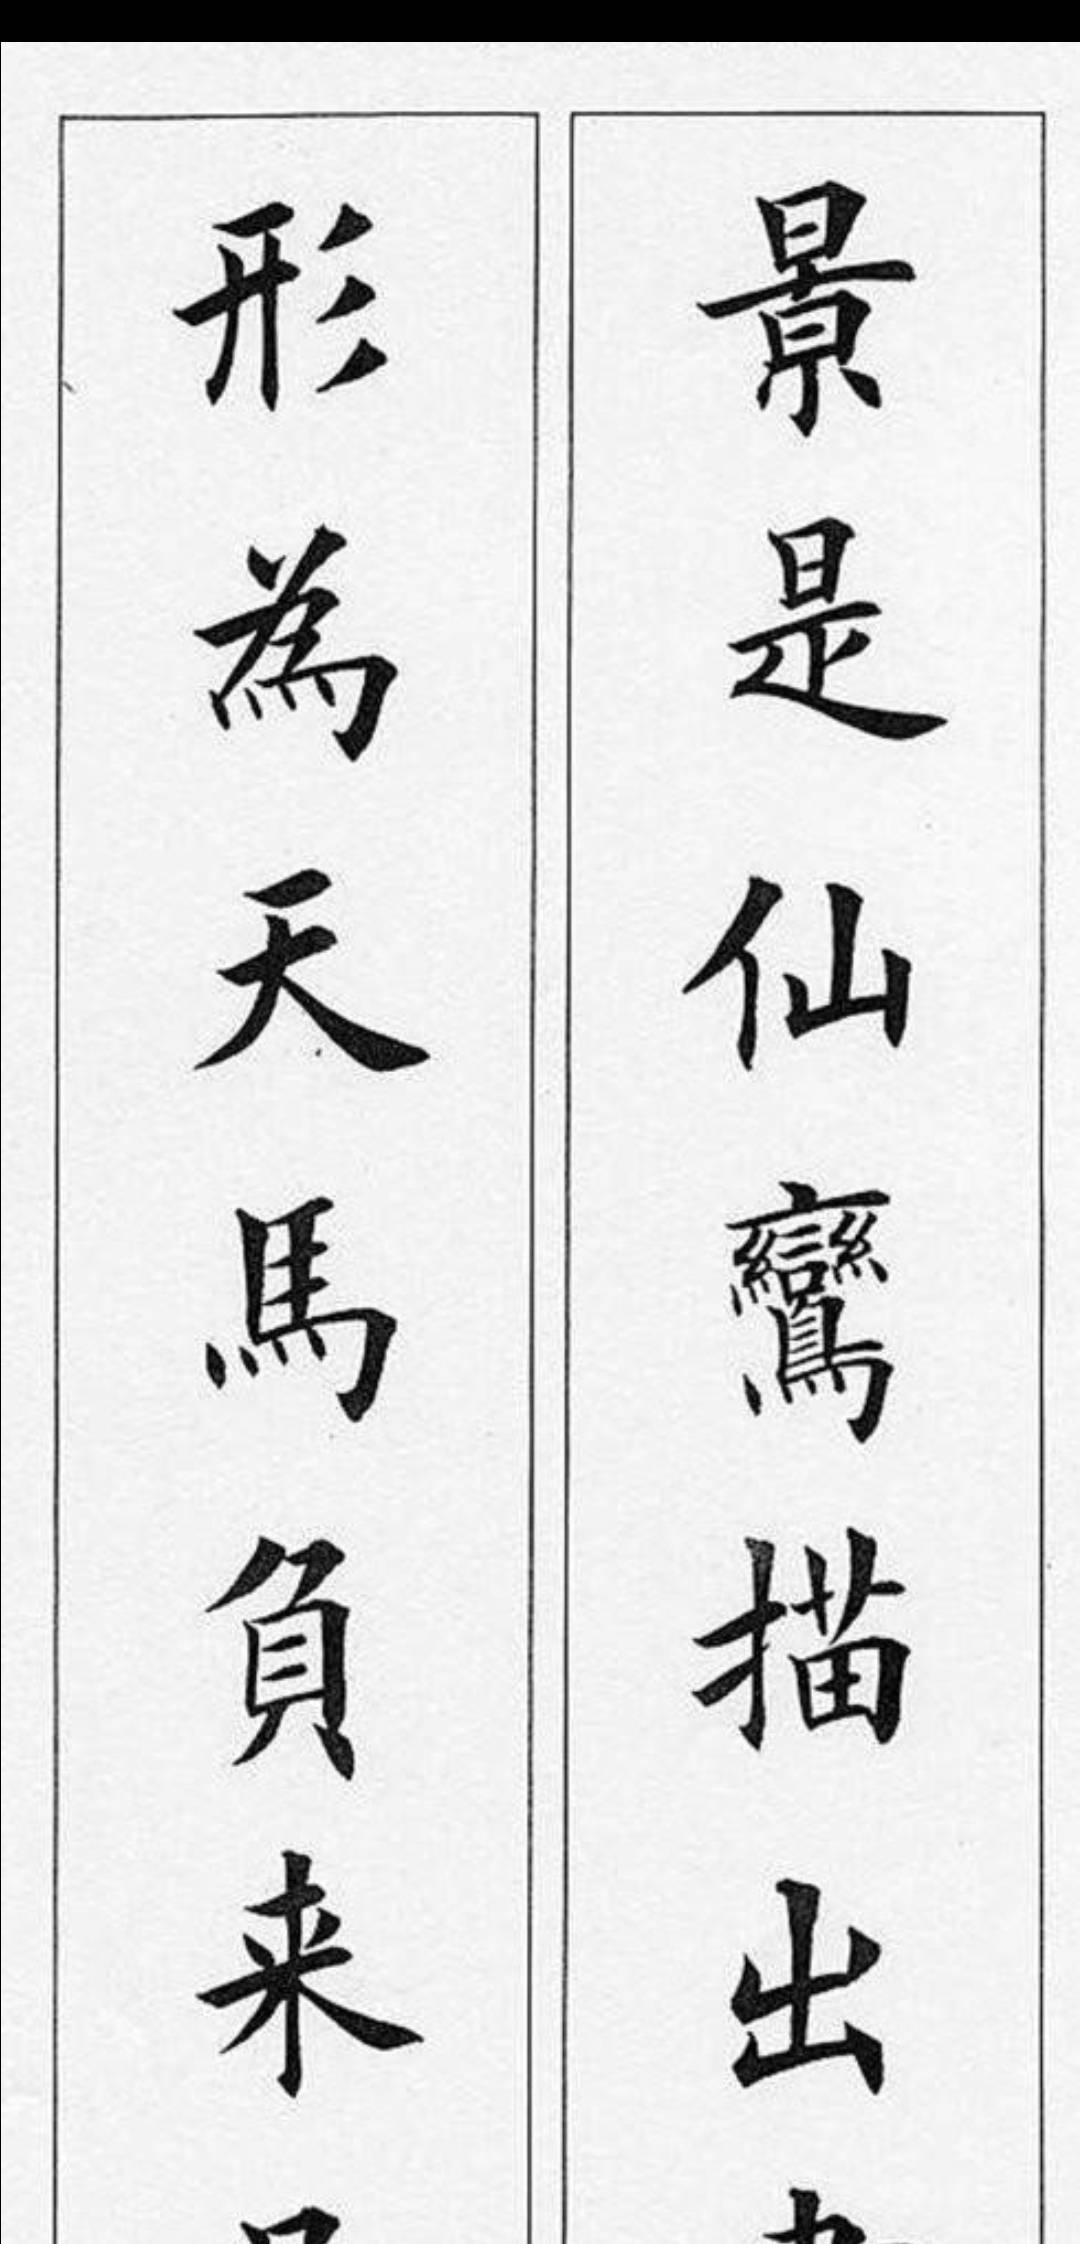 景是仙鸞描出
形為天馬負来